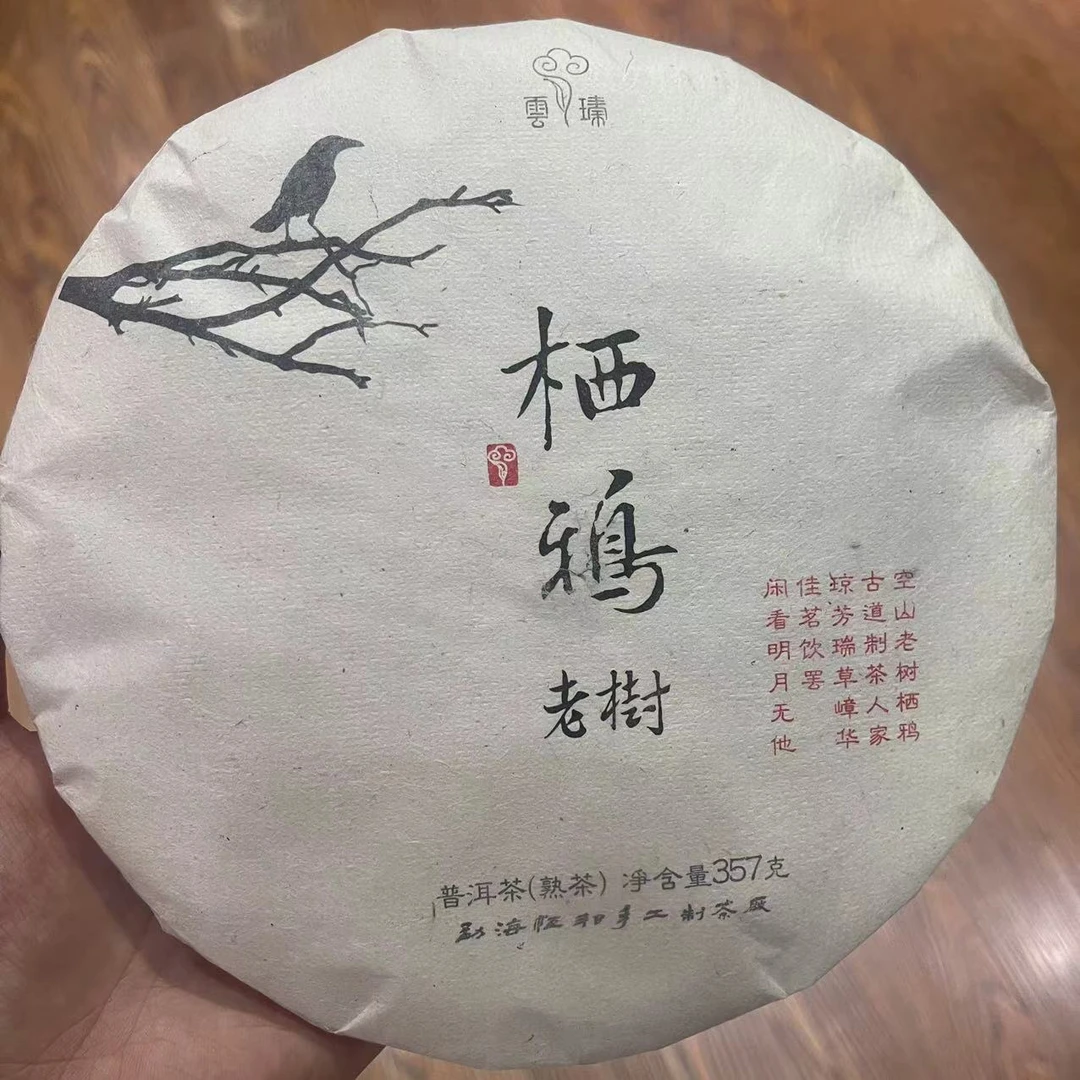 雲瑧
栖鴉
老樹
空山老树栖鸦
古道制茶人家
琼芳瑞草嶂华
佳茗饮罢
闲看明月无他
普洱茶(熟茶) 淨含量357克
勐海恒和手工制茶厰